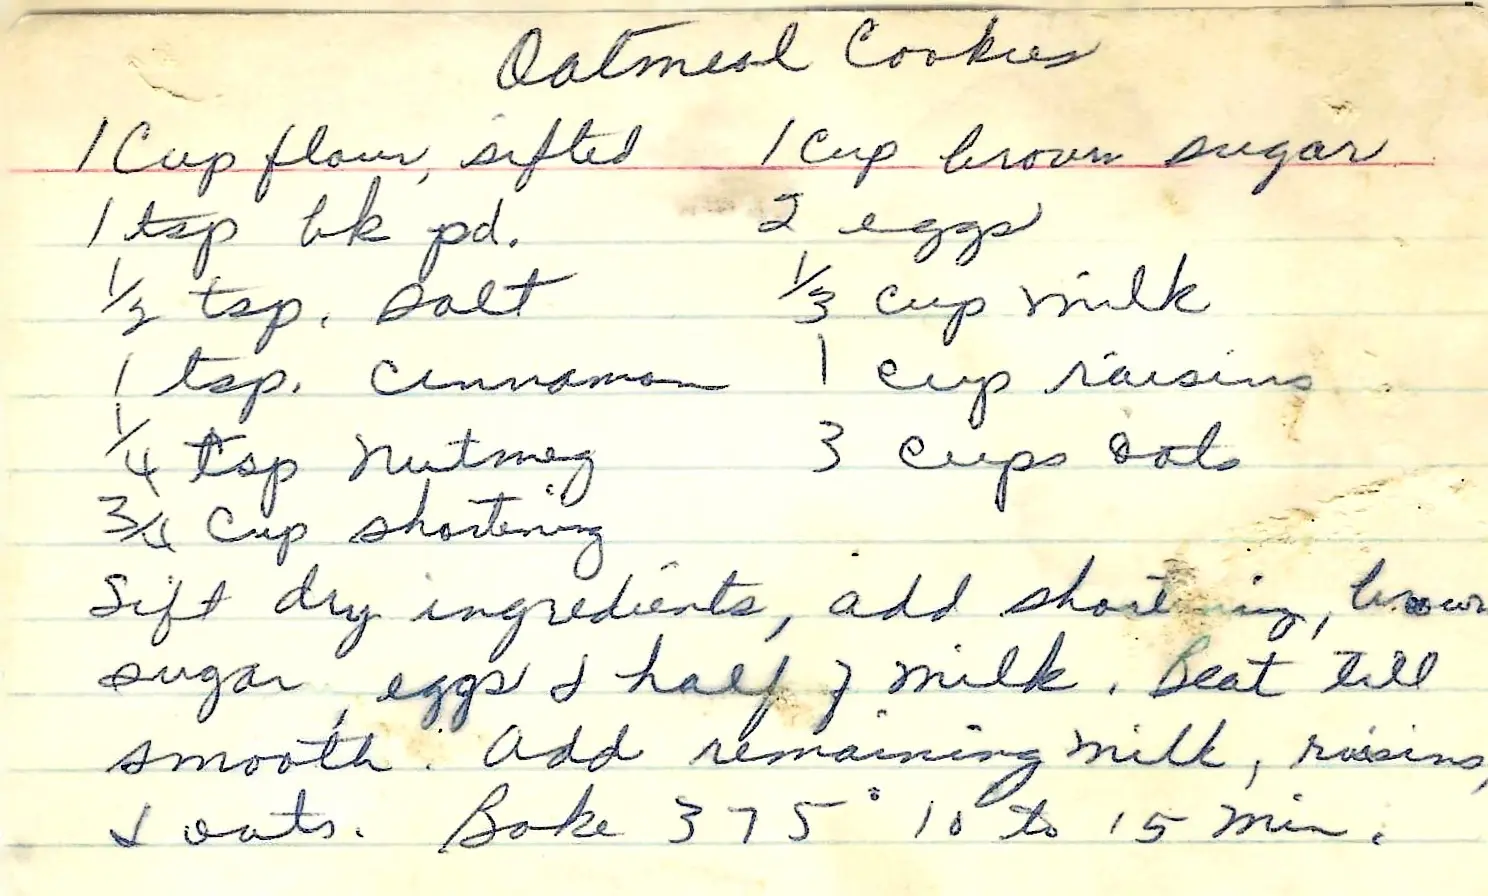 Oatmeal Cookies
1 Cup flour, sifted 1 cup brown sugar
1 tsp bk pd. 2 eggs
1/2 tsp. salt 1/3 cup milk
1 tsp. cinnamon 1 cup raisins
1/4 tsp nutmeg 3 cups oats
3/4 cup shortening
Sift dry ingredients, add shortening, brown
sugar, eggs & half of milk. Beat till
smooth. Add remaining milk, raisins,
& oats. Bake 375° 10 to 15 min.